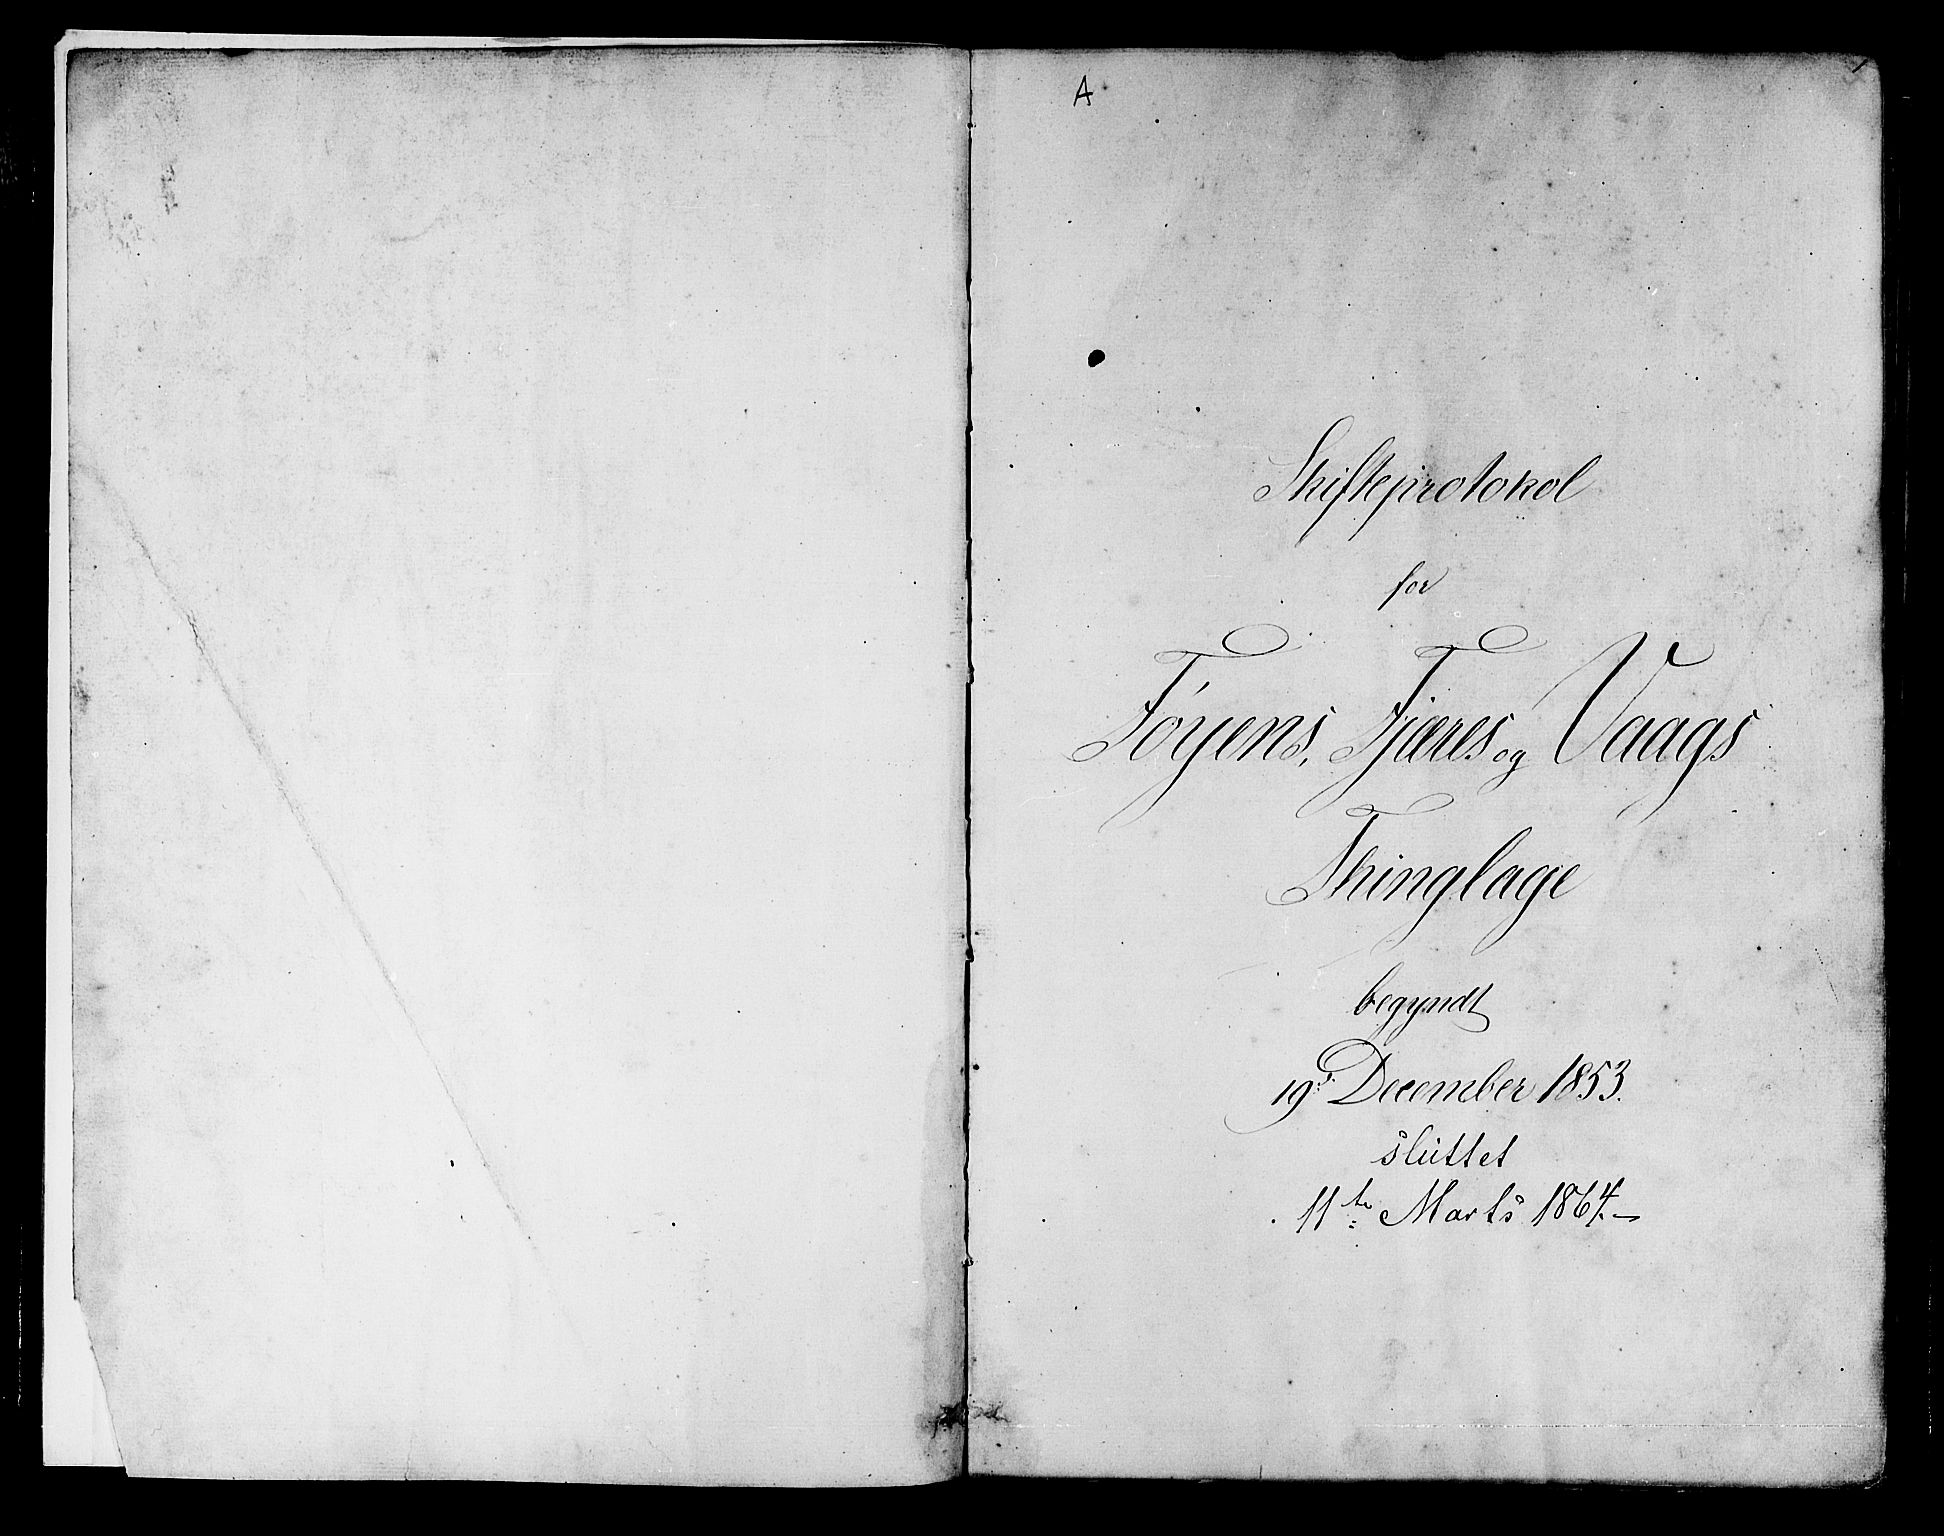 A
1
Skifteprotokol
for
Føyens, Fjæres og Vaags
Thinglage
begyndt
19d. December 1853.
sluttet
11te Marts 1864.—